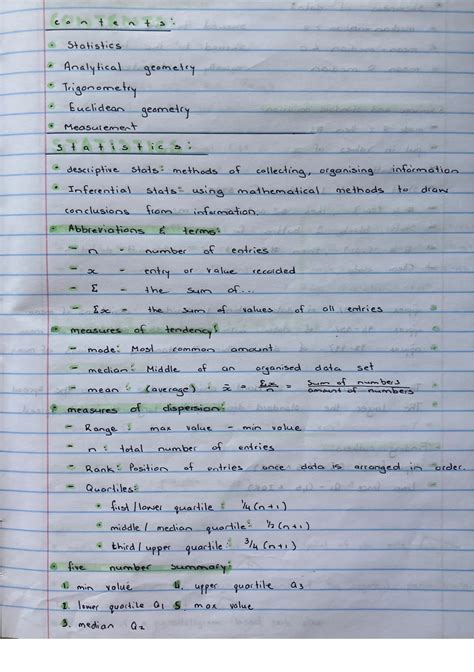 Contents:
• Statistics
• Analytical geometry
• Trigonometry
• Euclidean geometry
• Measurement
Statistics:
• descriptive stats: methods of collecting, organising information
• Inferential stats: using mathematical methods to draw
conclusions from information.
• Abbreviations & terms:
- n - number of entries
- x - entry or value recorded
- Σ - the sum of...
- Σx - the sum of values of all entries
• measures of tendency:
- mode: Most common amount
- median: Middle of an organised data set
- mean: (average) : x̄ = Σx/n = sum of numbers/amount of numbers
• measures of dispersion:
- Range: max value - min value
- n: total number of entries
- Rank: Position of entries once data is arranged in order.
- Quartiles:
• first/lower quartile: 1/4 (n+1)
• middle/median quartile: 1/2 (n+1)
• third/upper quartile: 3/4 (n+1)
• five number summary:
1. min value 4. upper quartile Q3
2. lower quartile Q1 5. max value
3. median Q2